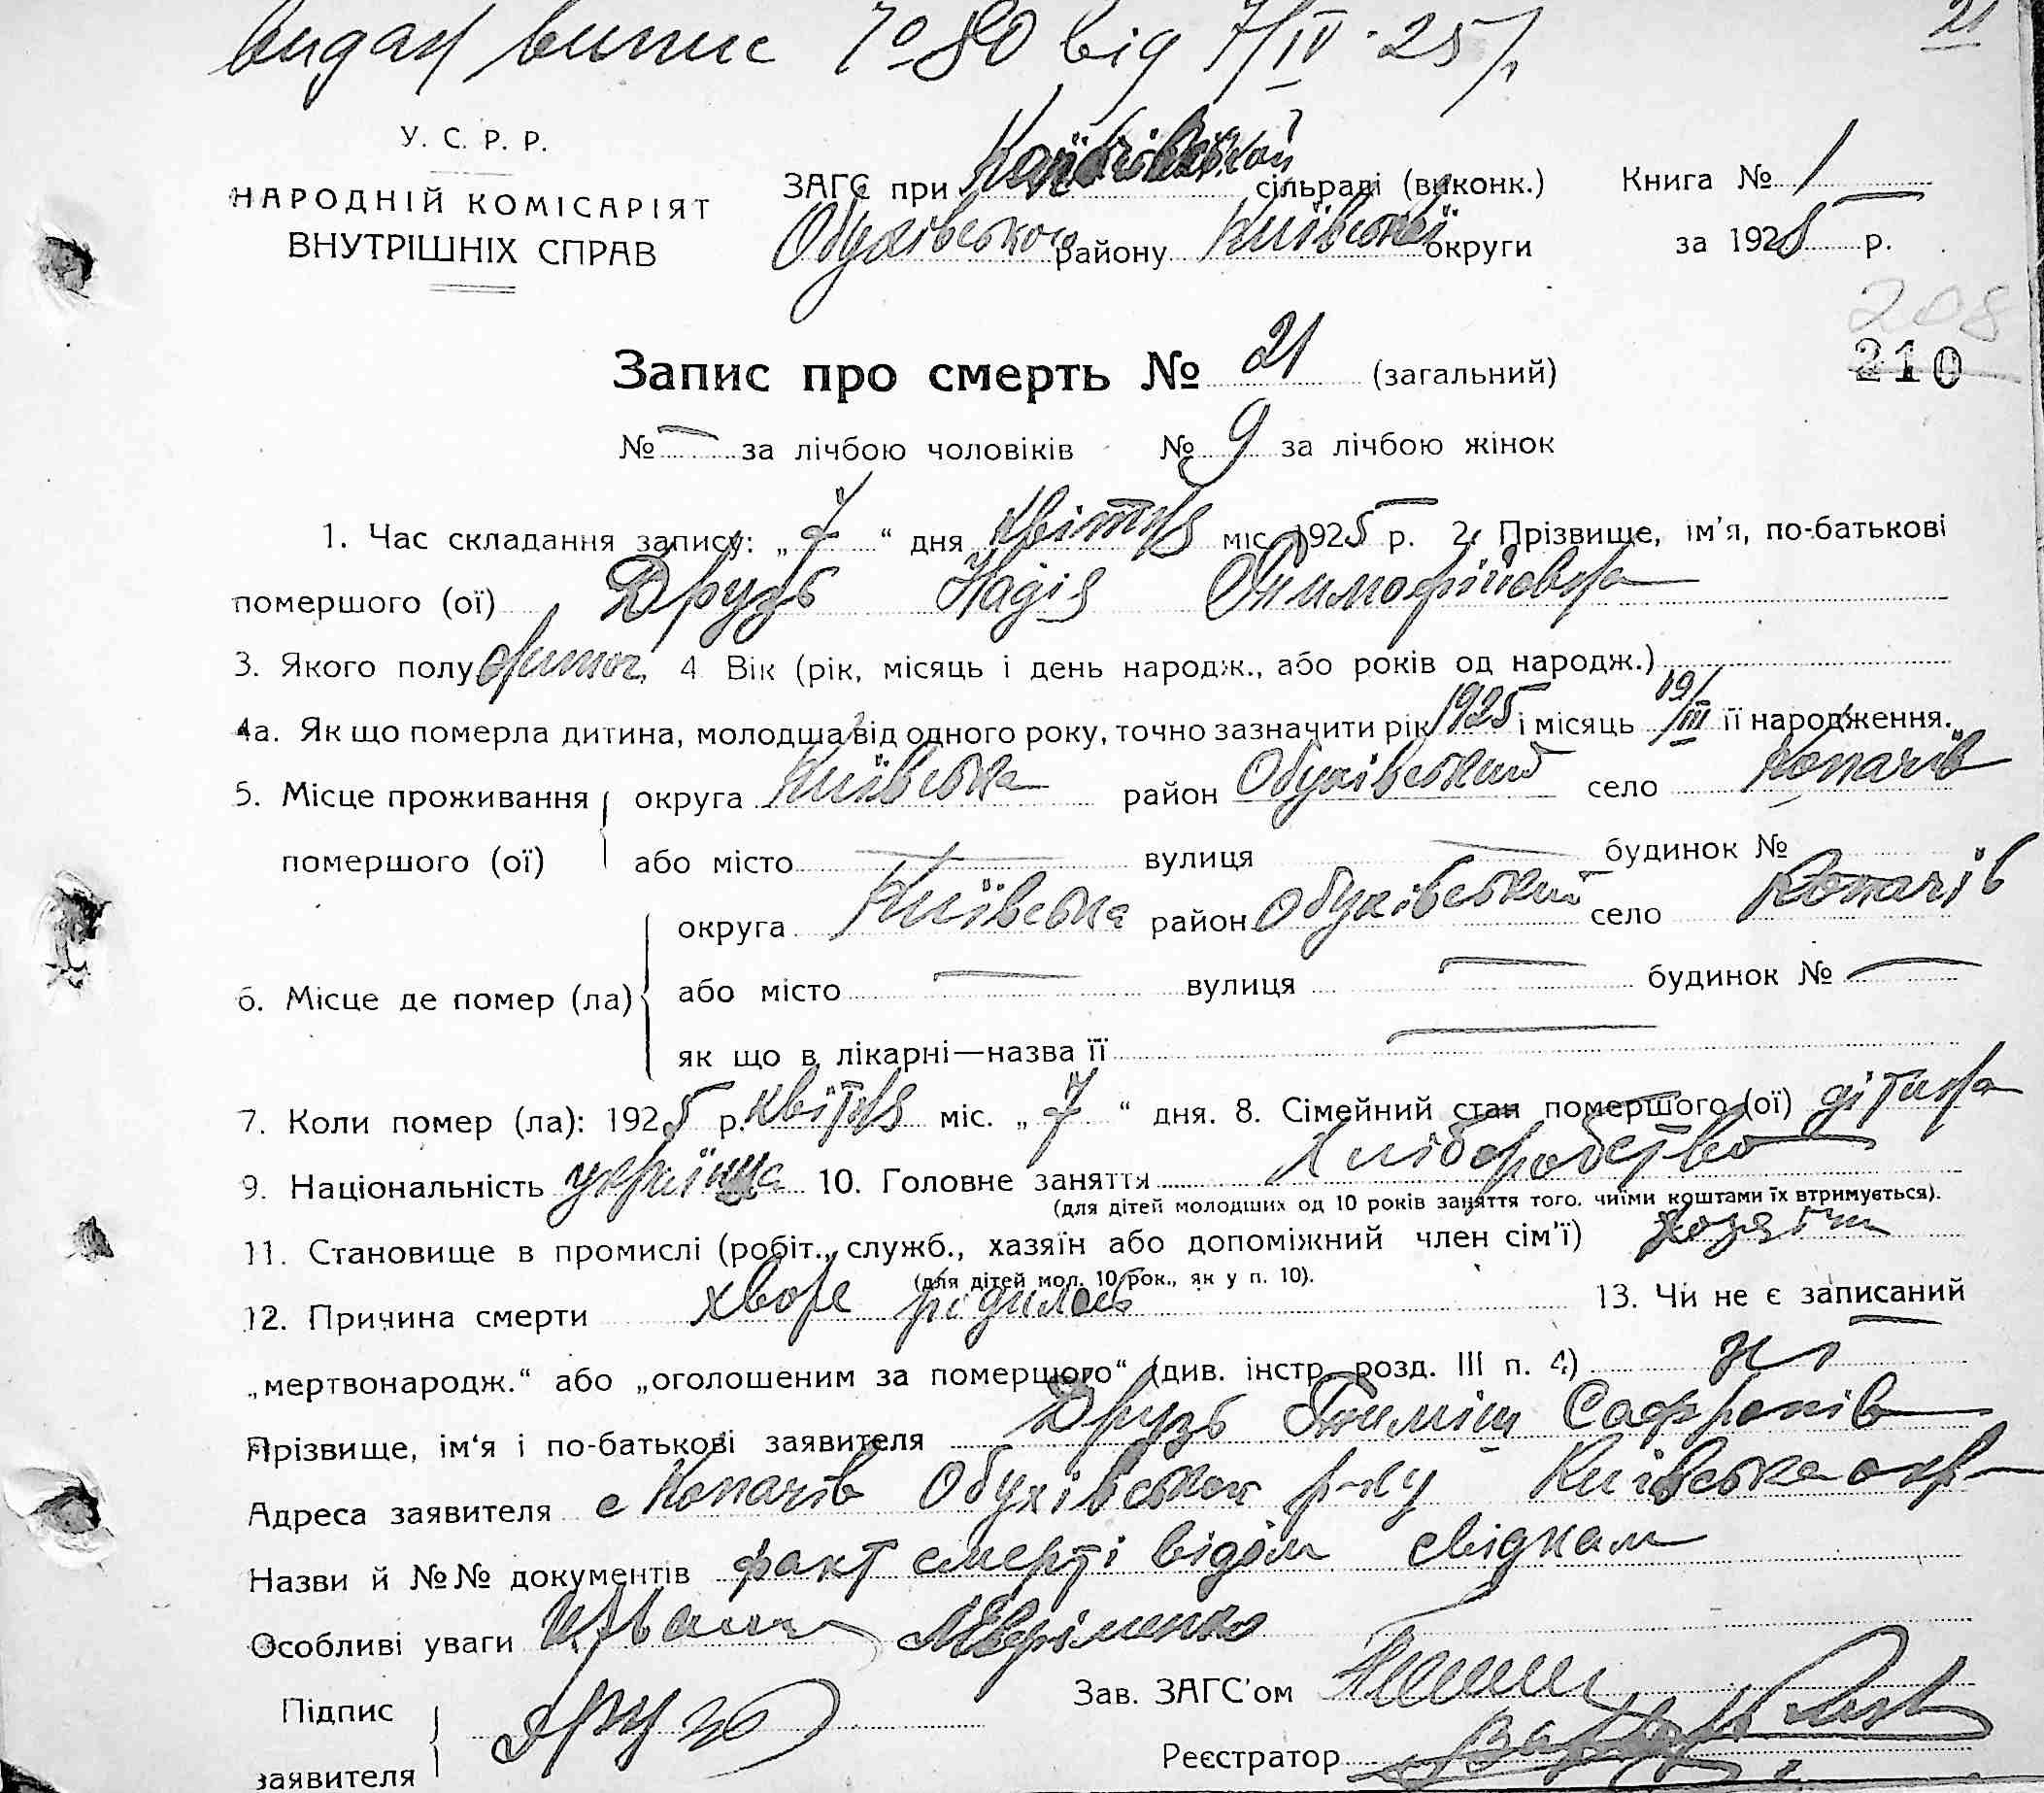 видан випис № 80 від 7/IV-25 р.
21
У. С. Р. Р.
НАРОДНІЙ КОМІСАРІЯТ
ВНУТРІШНІХ СПРАВ
ЗАГС при сільраді (виконк.)
Обухівського району Київської округи
Книга № 1
за 1925 р.
208
210
Запис про смерть № 21 (загальний)
№ — за лічбою чоловіків № 9 за лічбою жінок
1. Час складання запису: „7“ дня квітня міс. 1925 р. 2. Прізвище, ім'я, по-батькові
помершого (ої) Друзь Надія Тимофіївна
3. Якого полу 4 Вік (рік, місяць і день народж., або років од народж.)
4а. Як що померла дитина, молодша від одного року, точно зазначити рік 1925 і місяць 19/III її народження.
5. Місце проживання округа Київська район Обухівський село Копачів
помершого (ої) або місто — вулиця — будинок №
округа Київська район Обухівський село Копачів
6. Місце де помер (ла) або місто — вулиця — будинок № —
як що в лікарні—назва її —
7. Коли помер (ла): 1925 р. квітня міс. „7“ дня. 8. Сімейний стан помершого (ої) дітина
9. Національність 10. Головне заняття Хліборобство
(для дітей молодших од 10 років заняття того, чиїми коштами їх втримується).
11. Становище в промислі (робіт., служб., хазяїн або допоміжний член сім'ї)
(для дітей мол. 10 рок., як у п. 10).
12. Причина смерти хворе родилось 13. Чи не є записаний
„мертвонародж.“ або „оголошеним за помершого“ (див. інстр. розд. III п. 4) ні
Прізвище, ім'я і по-батькові заявителя Друзь Тиміш Сафронів
Адреса заявителя с Копачів Обухівськ р-ну Київська окр-
Назви й №№ документів факт смерті відом свідкам
Особливі уваги Івану
Підпис
заявителя Друзь
Зав. ЗАГС'ом
Реєстратор